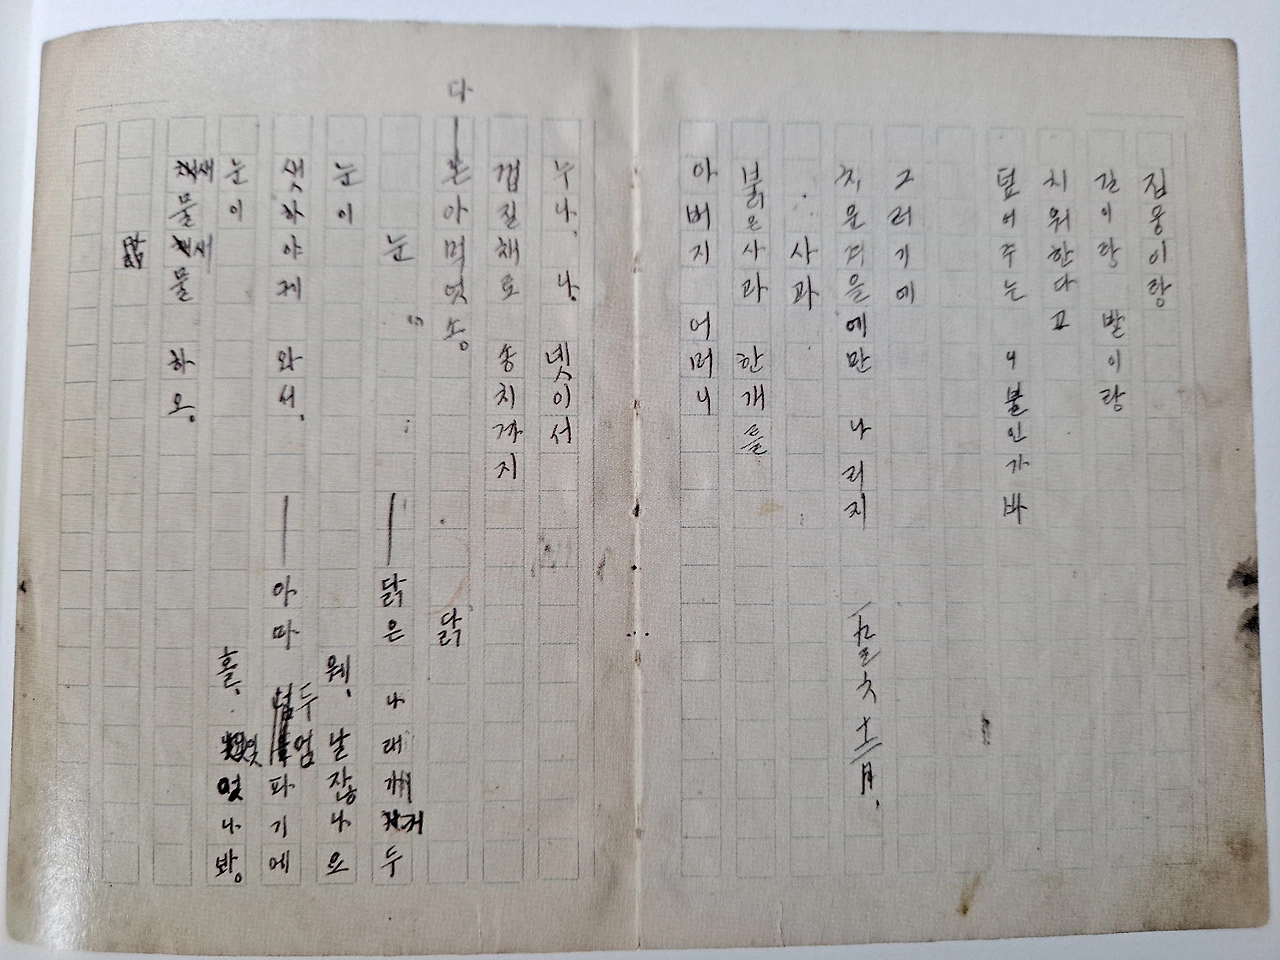 집웅이랑
길이랑 발이랑
치워한다고
덮어주는 니불인가바
그러기에
치운겨을에만 나리지
十二月.
사과
붉은사과 한개를
아버지 어머니
누나, 나, 넷이서
껍질채로 송치까지
다—논아먹엇소。
눈
눈이
샛하야케 와서,
눈이
새물새물 하오。
닭
—닭은 나래가 커두
웨, 날잖나요
—아마 두엄파기에
홀, 잊엇나봐。